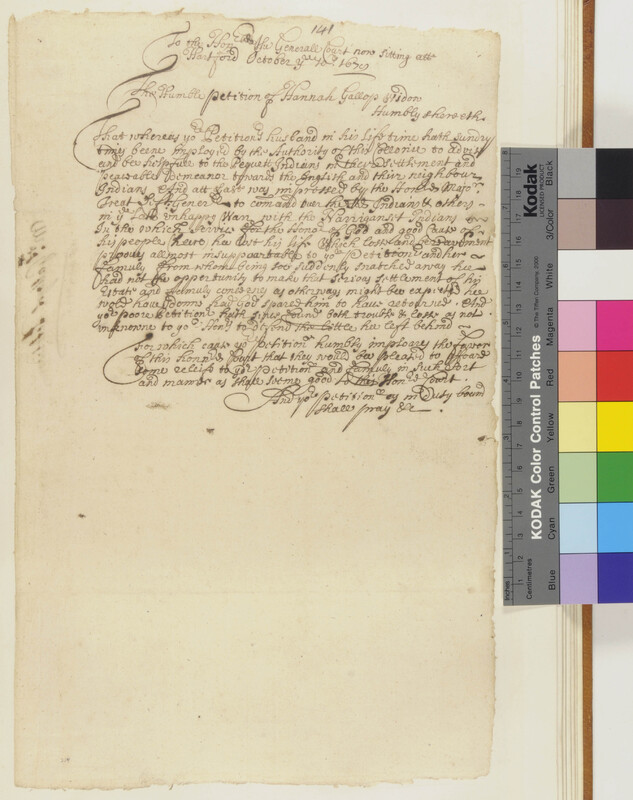 141
To the Hon:rble the Generall Court now sitting att
Hartford October ye 10th 1679
The Humble petition of Hannah Gallop Widow
Humbly sheweth
That whereas yor Petitionrs husband in his life time hath sundry
times beene Imployed by the Authority of this Colonie to advise
and bee helpfull to the Pequett Indians in their Settlement and
peaceable Demeanor towards the English and their neighbour
Indians And att last was impressed by the Hond Major
Treat to comand over the Indians & others
in ye Late unhappy Warr with the Narriganset Indians
In the which service for the Honor of God and good of
his people heere he lost his life Which losse and bereavement
prooves allmost insupportable to yor Petitionr and her
family from whom being soe suddenly snatched away hee
had not the opportunity to make that serious settlement of his
Estate and family concerns as otherways might bee expected hee
would have donne had god spared him to have retourned And
yor poore Petitionr hath since found both trouble & losse as not
unknowne to yor Honrs to defend the Little hee left behind
For which cause yor petitionr humbly implores the favor
of this Honord Court that they would bee pleased to afoard
some releife to yor petitionr and family in such sort
and manner as shall seeme good to this Honord Court.
And yor Petitioner as in Duty bound
shall pray &c.
Kodak
LICENSED PRODUCT
KODAK Color Control Patches
© The Tiffen Company, 2000
Black
3/Color
White
Magenta
Red
Yellow
Green
Cyan
Blue
Inches
Centimetres